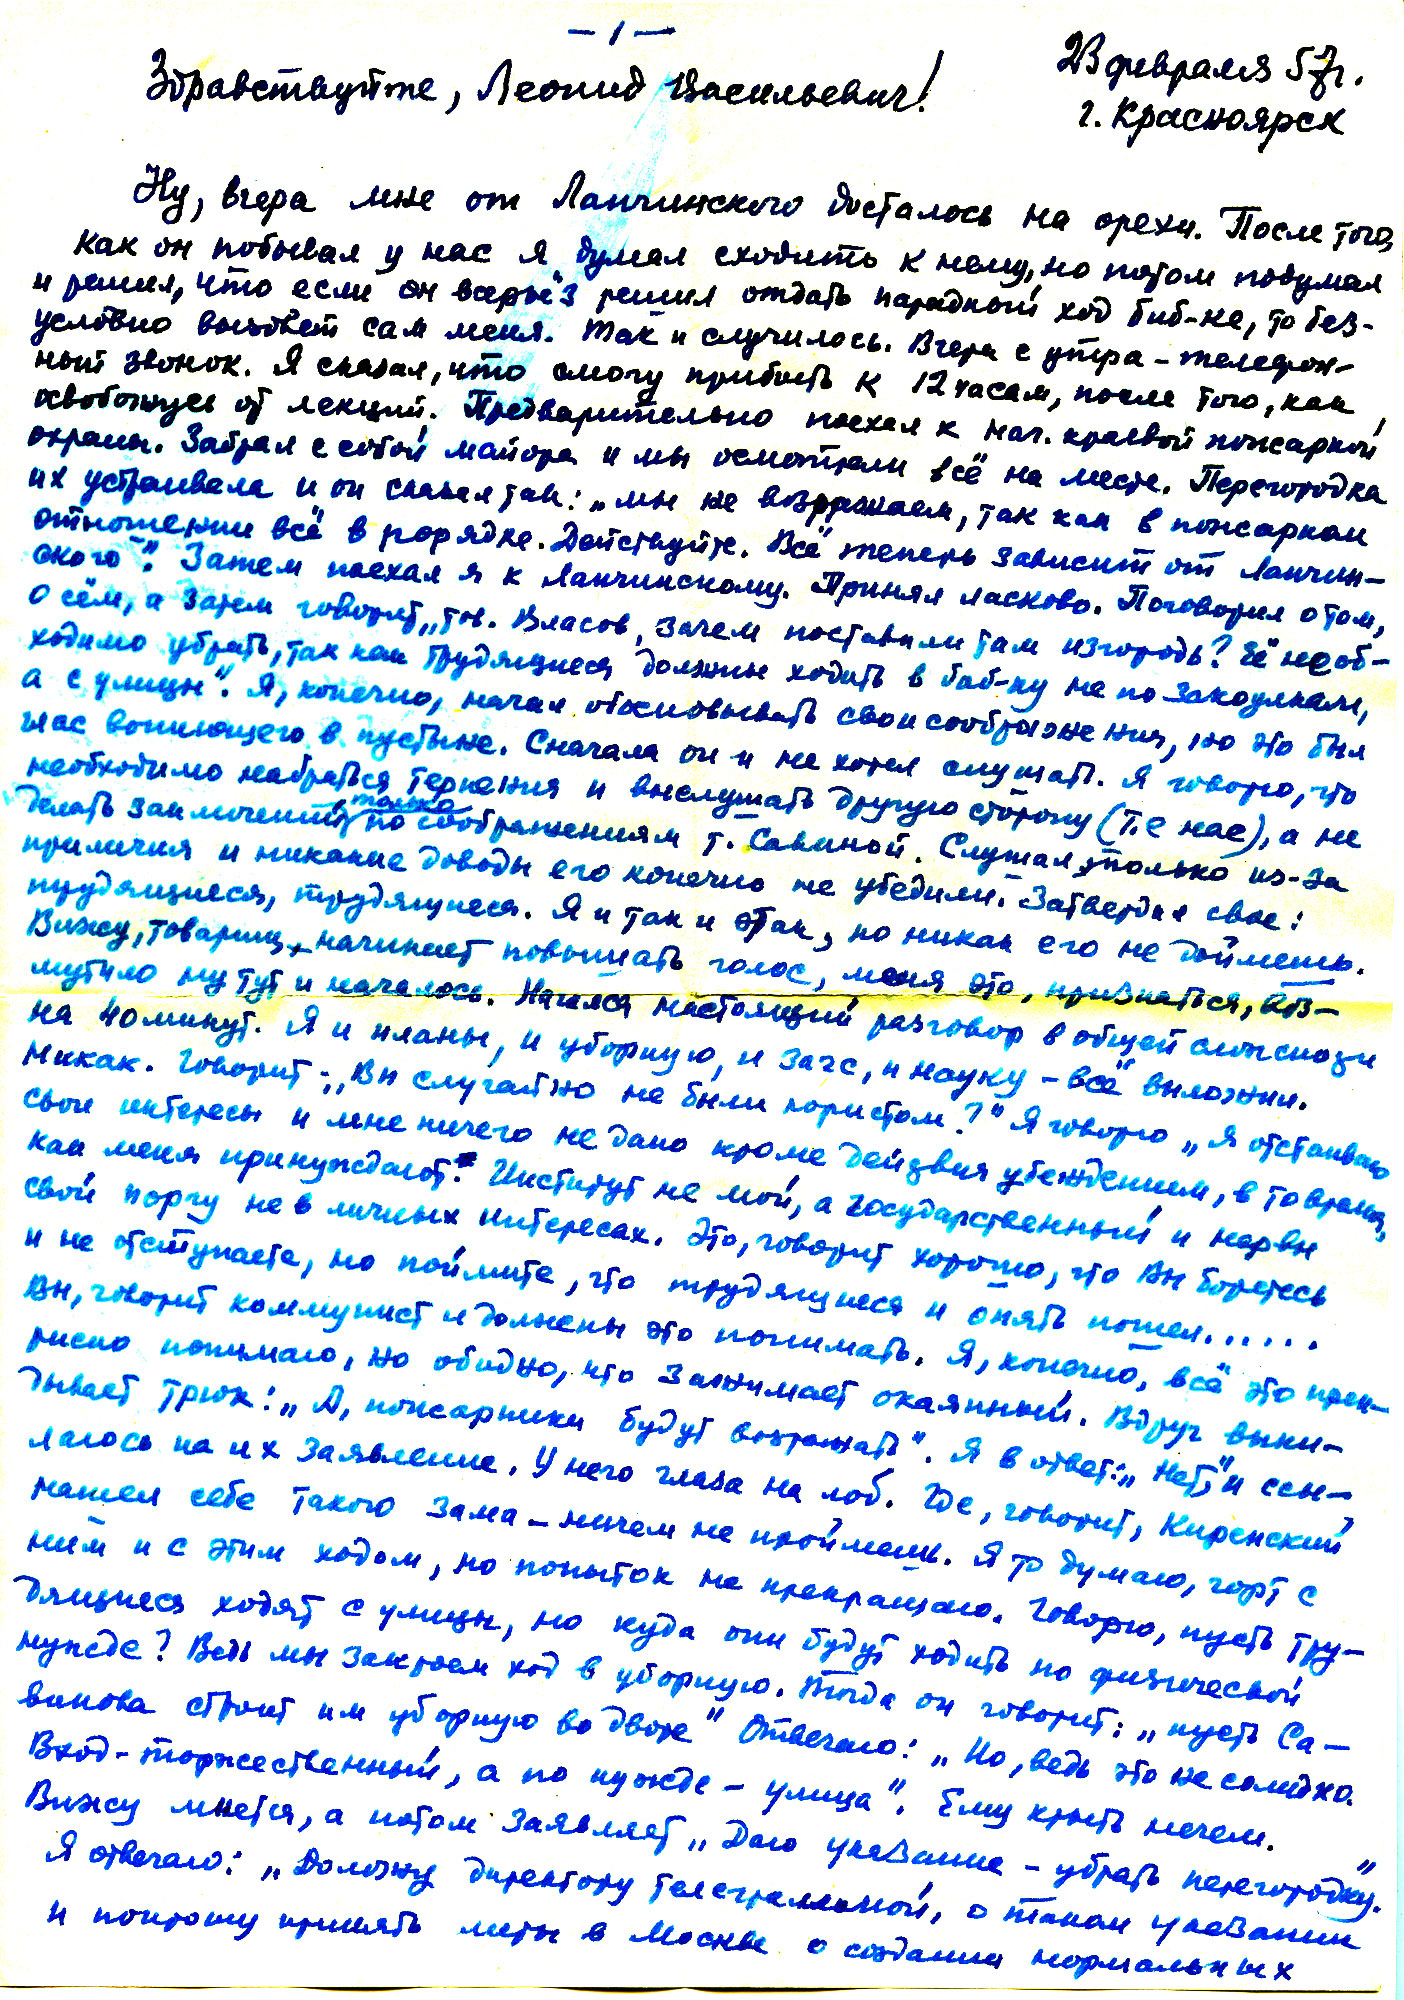 — 1 —
23 февраля 57г.
Здравствуйте, Леонид Васильевич!
г. Красноярск
Ну, вчера мне от Ланчинского досталось на орехи. После того,
как он побывал у нас я думал сходить к нему, но потом подумал
и решил, что если он всерьёз решил отдать парадный ход биб-ке, то без-
условно вызовет сам меня. Так и случилось. Вчера с утра – телефон-
ный звонок. Я сказал, что смогу прибыть к 12 часам, после того, как
освобожусь от лекций. Предварительно поехал к нач. краевой пожарной
охраны. Забрал с собой майора и мы осмотрели всё на месте. Перегородка
их устраивала и он сказал так: „мы не возражаем, так как в пожарном
отношении всё в порядке. Действуйте. Всё теперь зависит от Ланчин-
ского". Затем поехал я к Ланчинскому. Принял ласково. Поговорил о том,
о сём, а затем говорит „тов. Власов, зачем поставили там изгородь? Её необ-
ходимо убрать, так как трудящиеся должны ходить в биб-ку не по закоулкам,
а с улицы". Я, конечно, начал обосновывать свои соображения, но это был
глас вопиющего в пустыне. Сначала он и не хотел слушать. Я говорю, что
необходимо набраться терпения и выслушать другую сторону (т.е нас), а не
делать заключений только по соображениям т. Савиной. Слушал только из-за
приличия и никакие доводы его конечно не убедили. Затвердил свое:
трудящиеся, трудящиеся. Я и так и этак, но никак его не доймешь.
Вижу, товарищ начинает повышать голос, меня это, признаться, воз-
мутило ну тут и началось. Начался настоящий разговор в общей сложности
на 40 минут. Я и планы, и уборную, и загс, и науку – всё выложил.
Никак. Говорит: „Вы случайно не были юристом?" Я говорю „Я отстаиваю
свои интересы и мне ничего не дано кроме действия убеждением, в то время,
как меня принуждают." Институт не мой, а государственный и нервы
свои порчу не в личных интересах. Это, говорит хорошо, что Вы боретесь
и не отступаете, но поймите, что трудящиеся и опять пошел......
Вы, говорит коммунист и должны это понимать. Я, конечно, всё это прек-
расно понимаю, но обидно, что зажимает окаянный. Вдруг выки-
дывает трюк: „А, пожарники будут возражать". Я в ответ: „Нет," и ссы-
лаюсь на их заявление. У него глаза на лоб. Где, говорит, Киренский
нашел себе такого зама – ничем не проймешь. Я то думаю, чорт с
ним и с этим ходом, но попыток не прекращаю. Говорю, пусть тру-
дящиеся ходят с улицы, но куда они будут ходить по физической
нужде? Ведь мы закроем ход в уборную. Тогда он говорит: „пусть Са-
винова строит им уборную во дворе" Отвечаю: „Но, ведь это не солидно.
Вход – торжественный, а по нужде – улица". Ему крыть нечем.
Вижу мнется, а потом заявляет „Даю указание – убрать перегородку."
Я отвечаю: „Доложу директору телеграммой, о таком указании
и попрошу принять меры в Москве о создании нормальных